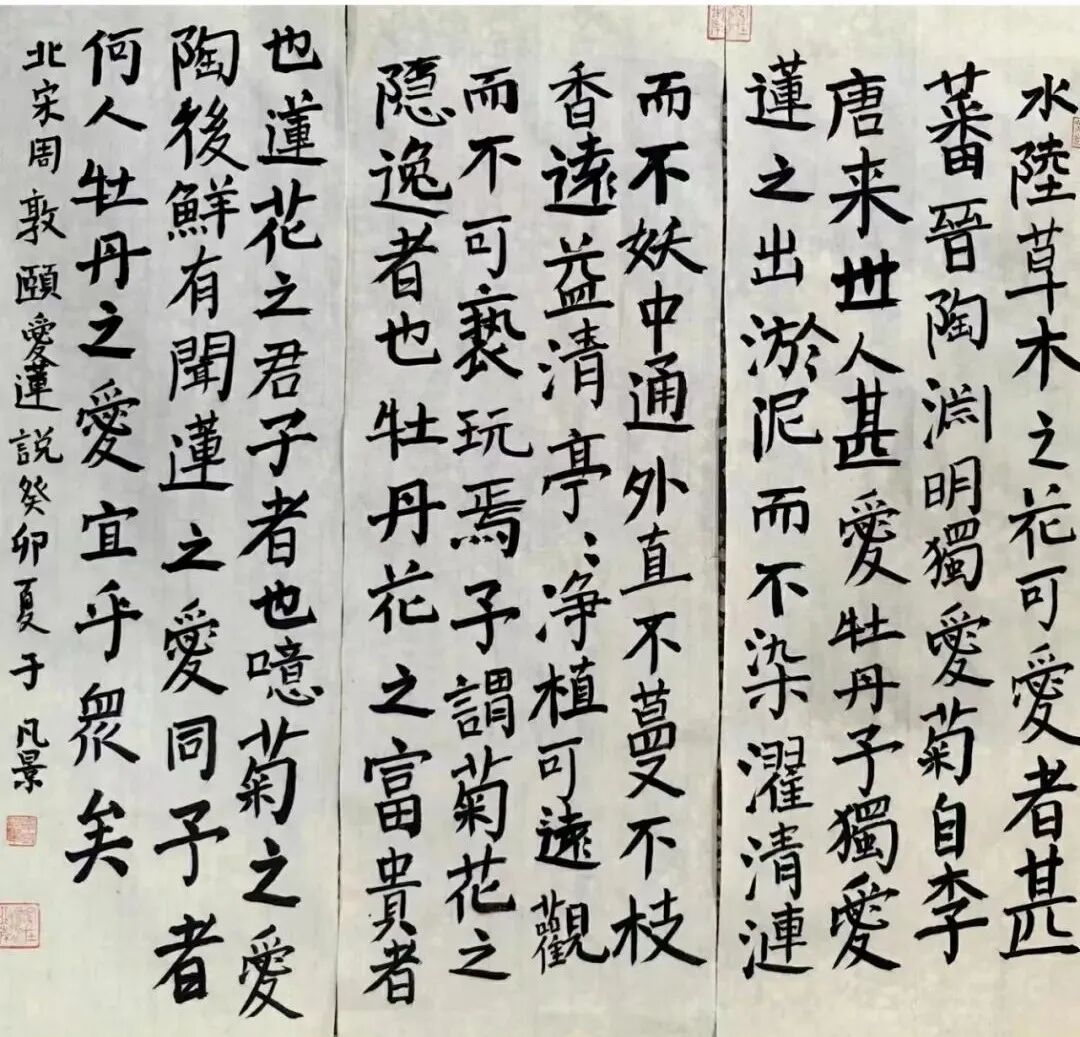 水陸草木之花可愛者甚
蕃晉陶淵明獨愛菊自李
唐来世人甚愛牡丹予獨愛
蓮之出淤泥而不染濯清漣
而不妖中通外直不蔓不枝
香遠益清亭〻浄植可遠觀
而不可褻玩焉予謂菊花之
隱逸者也牡丹花之富貴者
也蓮花之君子者也噫菊之愛
陶後鮮有聞蓮之愛同予者
何人牡丹之愛宜乎眾矣
北宋周敦頤愛蓮説癸卯夏于凡景